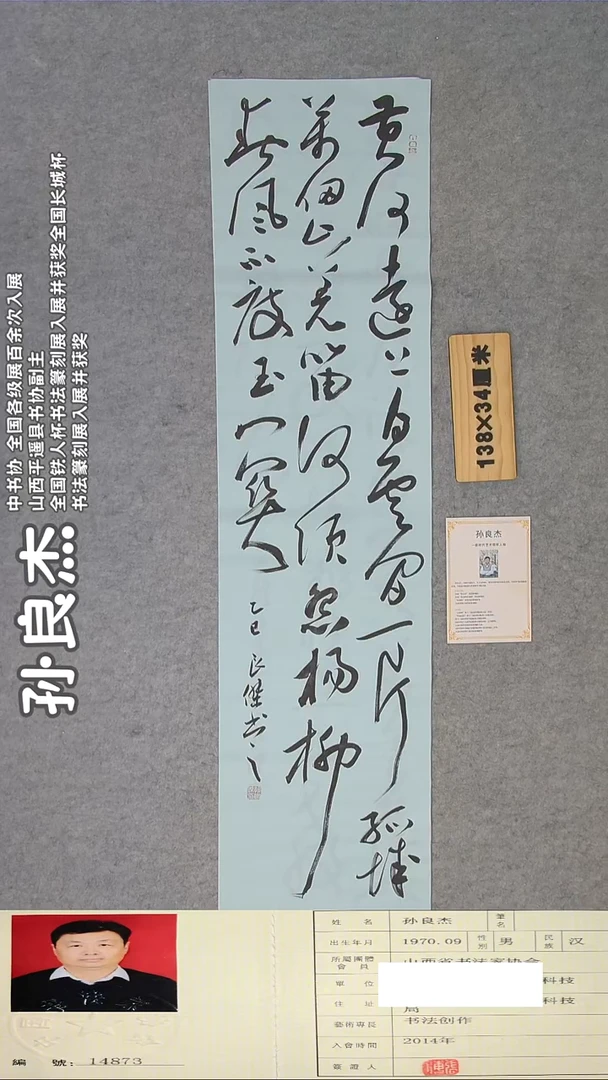 黄河遠上白雲間一片孤城
萬仞山羌笛何須怨楊柳
春風不度玉门關
乙巳良傑书
138×34厘米
孙良杰
孙良杰
中书协 全国各级展百余次入展
山西平遥县书协副主
全国铁人杯书法篆刻展入展并获奖全国长城杯
书法篆刻展入展并获奖
姓 名 孙良杰 筆名
出生年月 1970.09 性别 男 民族 汉
所屬團體會員 山西省书法家协会
單 位 科技
住 址 科技局
藝術專長 书法创作
入會時間 2014年
簽證人
編 號：14873